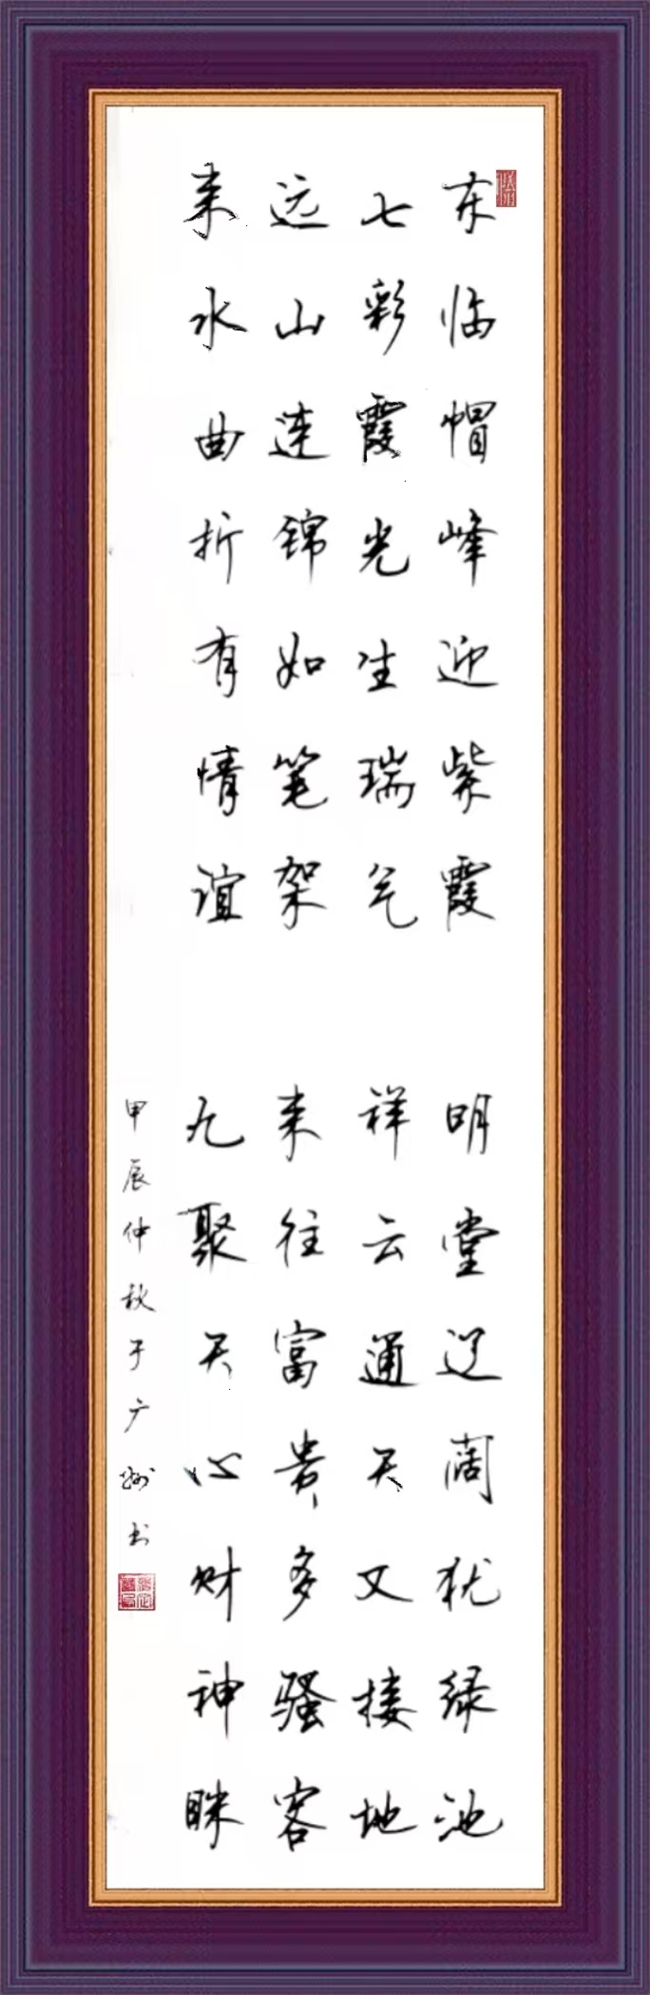 东临帽峰迎紫霞 明堂辽阔犹绿池
七彩霞光生瑞气 祥云通天又接地
远山连锦如笔架 来往富贵多骚客
来水曲折有情谊 九聚天心财神眯
甲辰仲秋于广州书